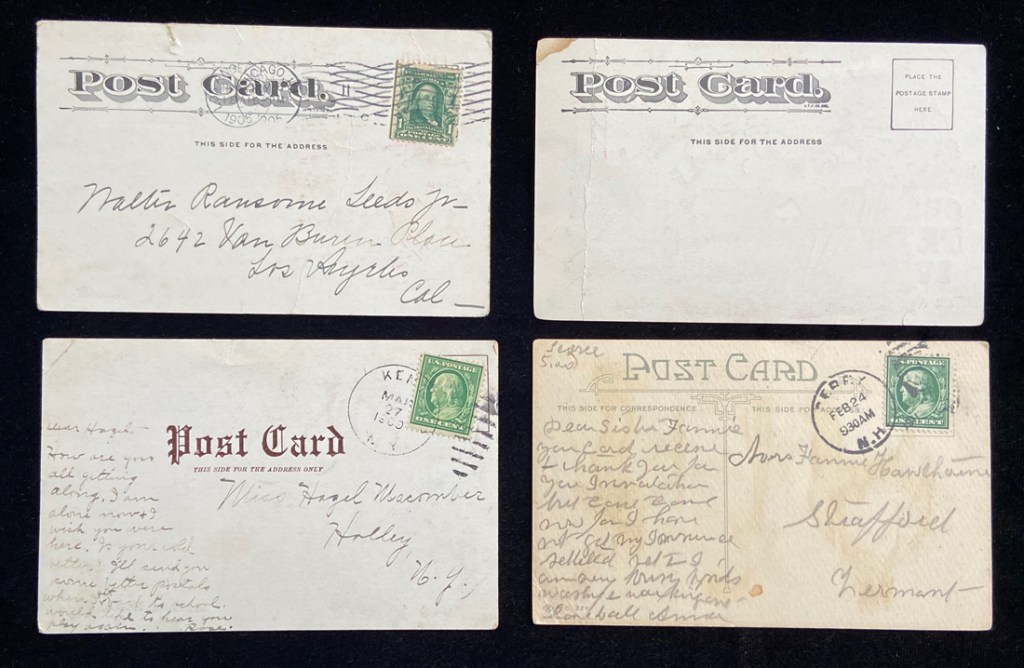 Post Card.
CHICAGO
1905
II
1
THIS SIDE FOR THE ADDRESS
Walter Ransome Leeds Jr
2642 Van Buren Place
Los Angeles
Cal
Post Card.
PLACE THE
POSTAGE STAMP
HERE
THIS SIDE FOR THE ADDRESS
KEN
MAR
27
N.Y.
U.S. POSTAGE
Post Card
THIS SIDE FOR THE ADDRESS ONLY
Miss Hazel Macomber
Holley
N.Y.
Dear Hazel-
How are you
all getting
along. I am
alone now & I
wish you were
here. Is your cold
better? I'll send you
some better postals
when I to school.
would like to hear you
play again. Rose.
POST CARD
DERRY
FEB 24
930AM
N.H.
U.S. POSTAGE
THIS SPACE FOR CORRESPONDENCE
THIS SIDE FOR
Dear Sister Fannie
your Card
I thank you for
your Invitation
but Cant Come
now for I have
not got my Insurance
settled yet I
am
Mrs Fannie Hawthorne
Strafford
Vermont